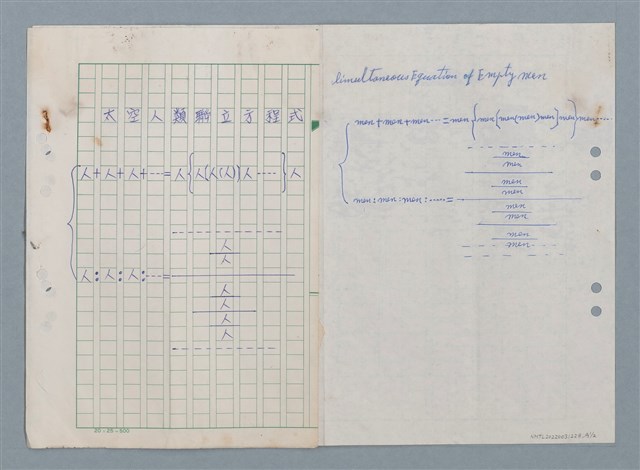 太空人類聯立方程式
人+人+人+……=人{人[人(人)]人……}人
人:人:人:……=
人
人
人
人
人
人
20-25-500
Simultaneous Equation of Empty men
men+men+men……=men{men[men(men)men]men}men……
men
men
men
men
men:men:men:……=
men
men
men
men